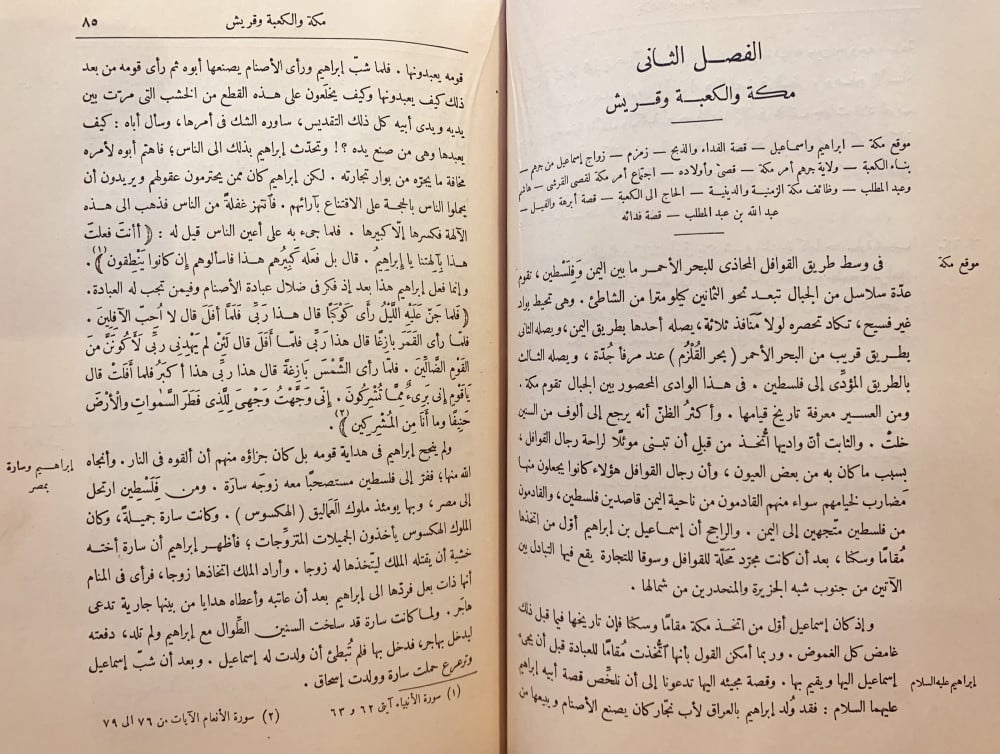 الفصل الثانى
مكة والكعبة وقريش
موقع مكة — ابراهيم واسماعيل — قصة الفداء والذبح — زمزم — زواج إسماعيل من جرهم —
بناء الكعبة — ولاية جرهم أمر مكة — قصىّ وأولاده — اجتماع أمر مكة لقصى القرشى — هاشم
وعبد المطلب — وظائف مكة الزمنية والدينية — الحاج الى الكعبة — قصة أبرهة والفيل —
عبد الله بن عبد المطلب — قصة فدائه
موقع مكة
فى وسط طريق القوافل المحاذى للبحر الأحمر ما بين اليمن وفَلَسْطين، تقوم
عدّة سلاسل من الجبال تبعد نحو الثمانين كيلومترا من الشاطئ. وهى تحيط بواد
غير فسيح، تكاد تحصره لولا مَنافذ ثلاثة، يصله أحدها بطريق اليمن، ويصله الثانى
بطريق قريب من البحر الأحمر (بحر القُلْزُم) عند مرفأ جُدّة، ويصله الثالث
بالطريق المؤدّى إلى فلسطين. فى هذا الوادى المحصور بين الجبال تقوم مكة.
ومن العسير معرفة تاريخ قيامها. وأكثرُ الظنّ أنه يرجع إلى ألوف من السنين
خلتْ. والثابت أنّ واديها اتُّخذ من قبل أن تبنى موئلًا لراحة رجال القوافل،
بسبب ما كان به من بعض العيون، وأن رجال القوافل هؤلاء كانوا يجعلون منها
مَضارب لخيامهم سواء منهم القادمون من ناحية اليمن قاصدين فلسطين، والقادمون
من فلسطين متّجهين إلى اليمن. والراجح أن إسماعيل بن إبراهيم أوّل من اتخذها
مُقامًا وسكنا، بعد أن كانت مجرّد مَحَلّة للقوافل وسوقا للتجارة يقع فيها التبادل بين
الآتين من جنوب شبه الجزيرة والمنحدرين من شمالها.
وإذ كان إسماعيل أوّل من اتخذ مكة مقامًا وسكنا فإن تاريخها فيما قبل ذلك
غامض كل الغموض. وربما أمكن القول بأنها اتُّخذت مُقامًا للعبادة قبل أن يجىء
إسماعيل اليها ويقيم بها. وقصة مجيئه اليها تدعونا إلى أن نلخّص قصة أبيه إبراهيم
إبراهيم عليه السلام
عليهما السلام: فقد وُلد إبراهيم بالعراق لأب نجار كان يصنع الأصنام ويبيعها من
مكة والكعبة وقريش
٨٥
قومه يعبدونها. فلما شبّ إبراهيم ورأى الأصنام يصنعها أبوه ثم رأى قومه من بعد
ذلك كيف يعبدونها وكيف يخلَعون على هذه القطع من الخشب التى مرّت بين
يديه ويدى أبيه كل ذلك التقديس، ساوره الشك فى أمرها، وسأل أباه: كيف
يعبدها وهى من صنع يده؟! وتحدّث إبراهيم بذلك الى الناس؛ فاهتم أبوه لأمره
مخافة ما يجرّه من بوار تجارته. لكن إبراهيم كان ممن يحترمون عقولهم ويريدون أن
يحملوا الناس بالحجة على الاقتناع بآرائهم. فآنتهز غفلةً من الناس فذهب الى هذه
الآلهة فكسرها إلّا كبيرها. فلما جىء به على أعين الناس قيل له: ﴿أأنتَ فعلتَ
هذا بآلهتنا يا إبراهيمُ. قال بل فعله كَبِيرُهم هذا فاسألوهم إن كانوا يَنْطِقون(١)﴾.
وإنما فعل إبراهيم هذا بعد إذ فكر فى ضلال عبادة الأصنام وفيمن تجب له العبادة.
﴿فلما جَنّ عَلَيْهِ اللَّيْلُ رأى كَوْكَبًا قال هذا رَبِّى فَلَمَّا أفَلَ قال لا أُحِبّ الآفِلِينَ.
فلمّا رأى القَمَرَ بازِغًا قال هذا رَبّى فلمّا أفَلَ قال لَئنْ لم يَهْدِنى ربِّى لَأَكُونَنَّ مِنَ
القَوْمِ الضَّالِّينَ. فلما رأى الشَّمْسَ بَازِغَةً قال هذا ربِّى هذا أكبرُ فلما أفَلَتْ قال
يَاقَوْمِ إنى بَرِىءٌ مِمَّا تُشْرِكُون. إنّى وَجَّهْتُ وَجْهِىَ لِلَّذِى فَطَرَ السَّمواتِ والأرْضَ
حَنِيفًا وما أنَا مِن المُشْرِكين(٢)﴾.
ولم ينجح إبراهيم فى هداية قومه بل كان جزاؤه منهم أن ألقوه فى النار. وأنجاه
إبراهيم وسارة
بمصر
الله منها؛ ففرّ إلى فلسطين مستصحبًا معه زوجه سارَة. ومن فِلَسْطِين ارتحل
إلى مصر، وبها يومئذ ملوك العَمَاليق (الهكسوس). وكانت سارة جميلةً، وكان
الملوك الهكسوس يأخذون الجميلات المتزوّجات؛ فأظهر إبراهيم أن سارة أختُه
خشية أن يقتله الملك ليتّخذها له زوجا. وأراد الملك اتخاذها زوجا، فرأى فى المنام
أنها ذات بعل فردّها الى إبراهيم بعد أن عاتبه وأعطاه هدايا من بينها جارية تدعى
هاجَر. ولما كانت سارة قد سلخت السنين الطِّوال مع إبراهيم ولم تلد، دفعته
ليدخل بهاجر، فدخل بها فلم تُبطئ أن ولدت له إسماعيل. وبعد أن شبّ إسماعيل
وترعرع حملت سارة وولدت إسحاق.
(١) سورة الأنبياء آيتى ٦٢ و ٦٣
(٢) سورة الأنعام الآيات من ٧٦ الى ٧٩